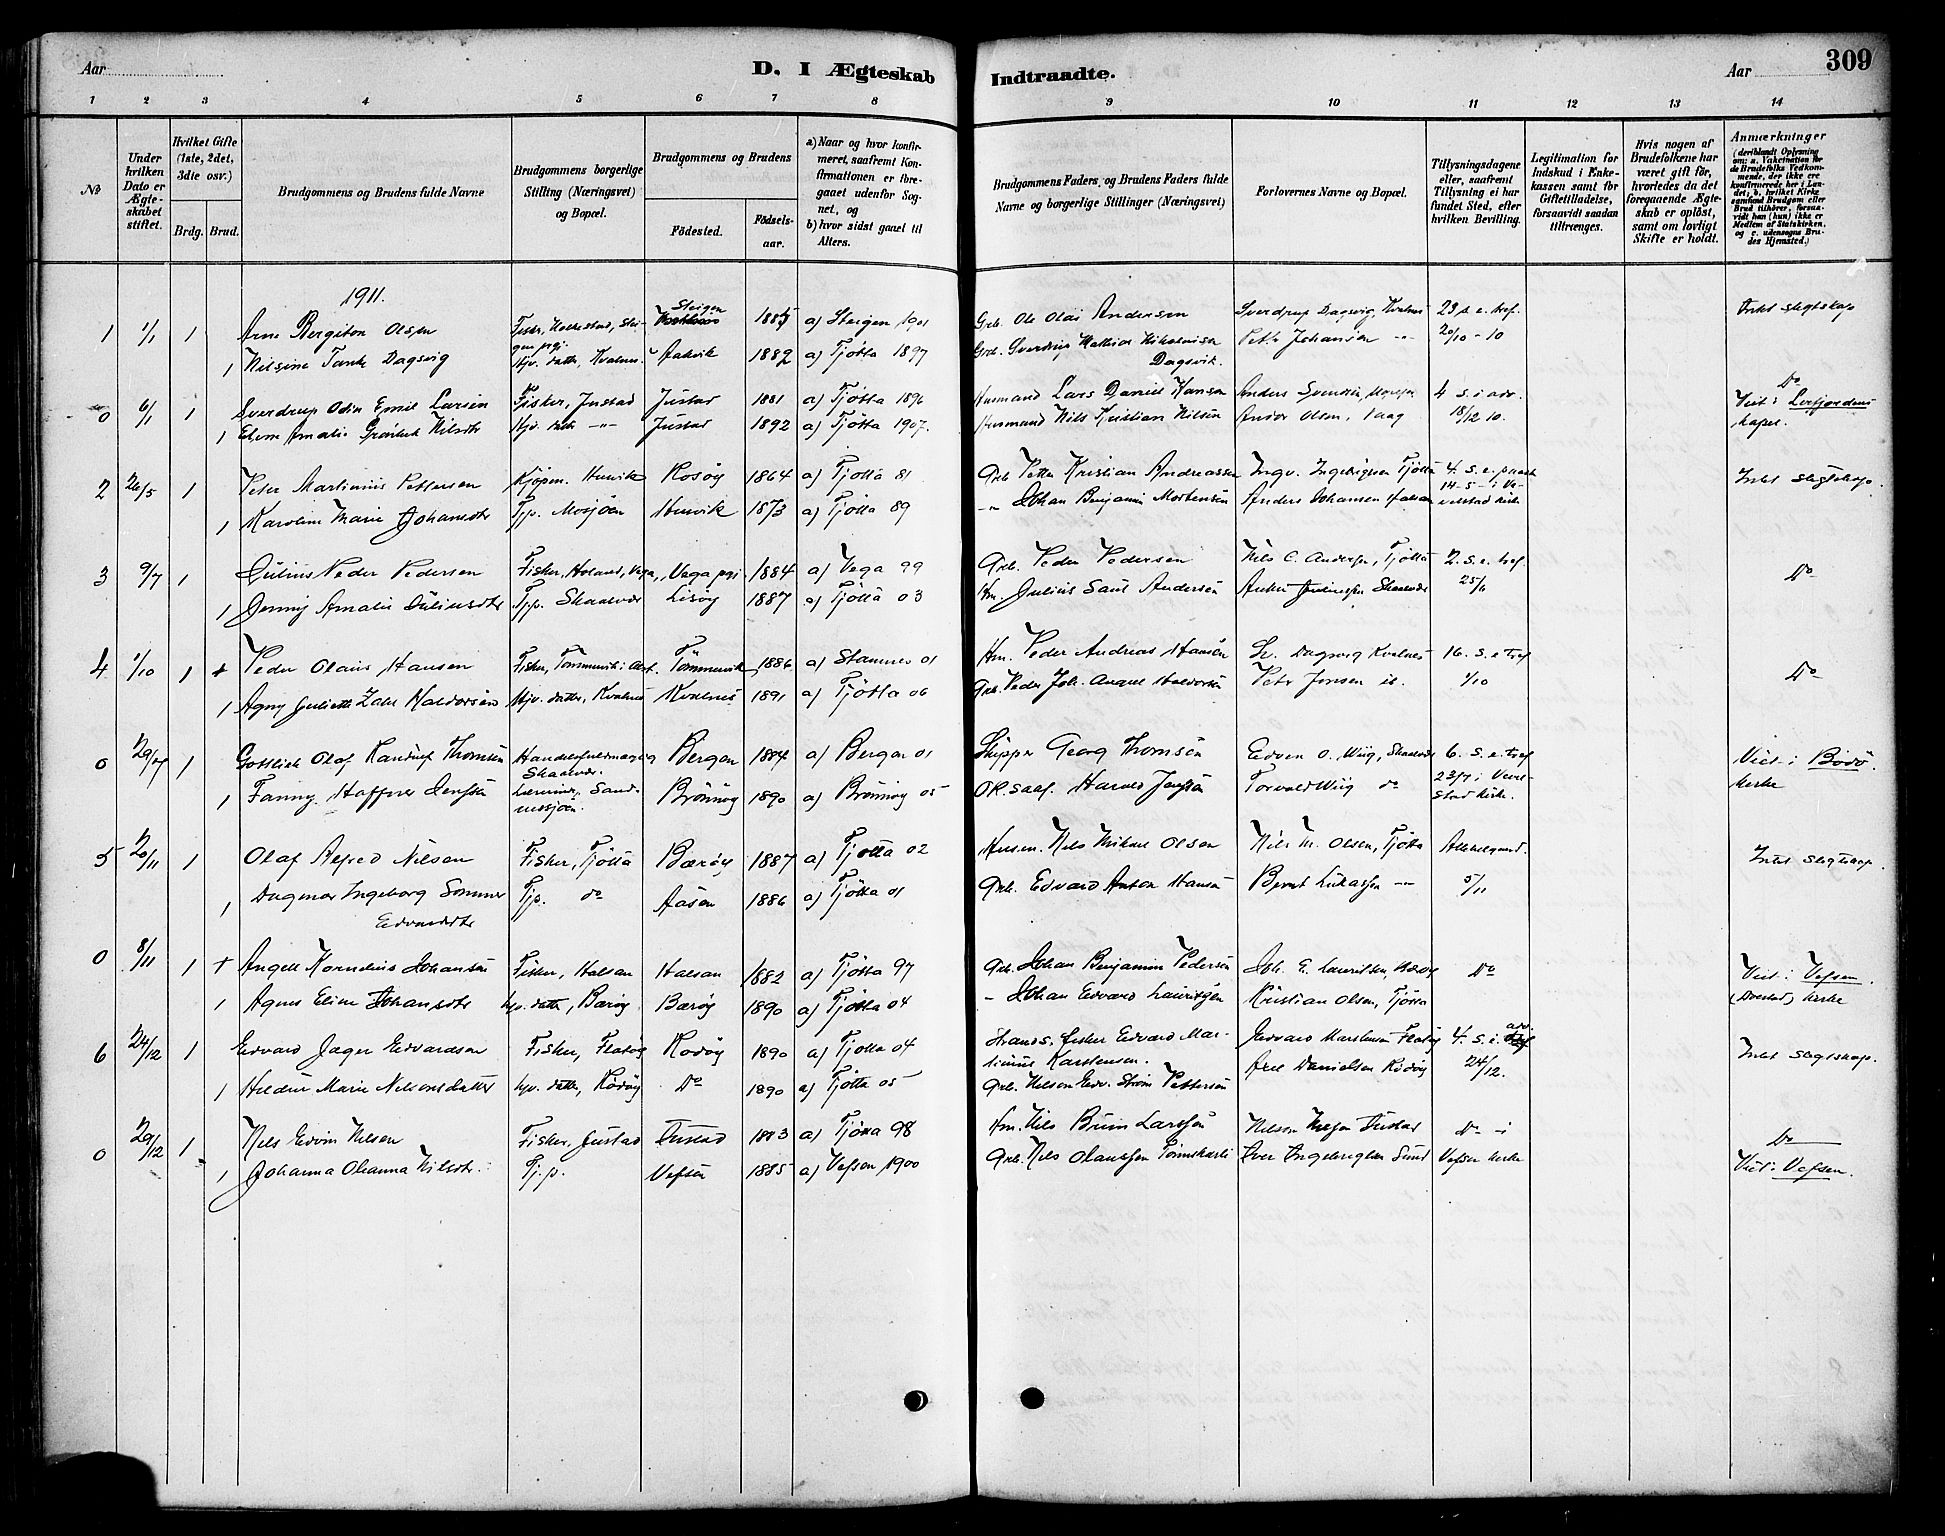 Aar
D. I Ægteskab Indtraadte.
Aar
309
1 2 3 4 5 6 7 8 9 10 11 12 13 14
No
Under hvilken Dato er Ægteskabet stiftet.
Hvilket Gifte (1ste, 2det, 3die osv.)
Brdg. Brud.
Brudgommens og Brudens fulde Navne
Brudgommens borgerlige Stilling (Næringsvei) og Bopæl.
Brudgommens og Brudens
Födested. Födselsaar.
a) Naar og hvor konfirmeret, saafremt Konfirmationen er foregaaet udenfor Sognet, og
b) hvor sidst gaaet til Alters.
Brudgommens Faders og Brudens Faders fulde Navne og borgerlige Stillinger (Næringsvei)
Forlovernes Navne og Bopæl.
Tillysningsdagene eller, saafremt Tillysning ei har fundet Sted, efter hvilken Bevilling.
Legitimation for Indskud i Enkekassen samt for Giftetilladelse, forsaavidt saadan tiltrænges.
Hvis nogen af Brudefolkene har været gift för, hvorledes da det foregaaende Ægteskab er oplöst, samt om lovligt Skifte er holdt.
Anmærkninger (deriblandt Oplysning om: a. Vakcination for de Brudefolks Vedkommende, der ikke ere konfirmerede her i Landet; b. hvilket Kirkesamfund Brudgom eller Brud tilhörer, forsaavidt han (hun) ikke er Medlem af Statskirken, og c. udensogns Brudes Hjemsted.)
1911.
1 1/1 1 Arne Bergiton Olsen Fisker, Steigen prgj. Steigen 1885 a) Steigen 1901 Grb. Ole Olai Andersen Sverdrup Dagsvig, Kvalnes 23 s. e. tref. Intet slegtskap
1 Nilsine Tank Dagsvig Hjv. datter, Kvalnes 1882 a) Tjøtta 1897 Grd. Sverdrup Mathias Nikolaisen Dagsvik. Petr Johansen -"- 20/10 - 10
0 6/1 1 Sverdrup Odin Emil Larsen Fisker, Justad Justad 1881 a) Tjøtta 1896 Husmand Lars Daniel Hansen Anders 4 s. i adv. Do
1 Amalie Nilsdtr Hjv. datter -"- Justad 1892 a) Tjøtta 1907. Husmand Nils Kristian Nilsen Andor Olsen, 18/12 10. Viet i Leirfjordens kapel
2 26/5 1 Peter Martinius Pettersen Kjøpm. Husvik Rosøy 1864 a) Tjøtta 81 Grb. Petter Kristian Andreassen Ingv. Ingebrigtsen Tjøtta 4. s. e. paask Intet slegtskap.
1 Karoline Marie Johansdtr Tjp. Mosjøen Husvik 1873 a) Tjøtta 89 -"- Johan Benjamin Mortensen Anders Johansen 14-5- i Vevelstad kirke
3 9/7 1 Julius Peder Pedersen Fisker, Holand, Vega Vega prgj. 1884 a) Vega 99 Grb. Peder Pedersen Nils C. Andersen, Tjøtta 2. s. e. tref. Do
1 Jenny Amalie Juliusdtr Tjp. Skaalvær Lisøy 1887 a) Tjøtta 03 Hm. Julius Saul Andersen Skaalvær 25/6
4 1/10 1 + Peder Olaus Hansen Fisker, Tømmervik i Alst. Tømmervik 1886 a) Stamnes 01 Hm. Peder Andreas Hansen Sv. Dagsvig Kvalnes 16. s. e tref Do
1 Agny Juliette Zahl Haldorsen Hjv. datter, Kvalnes Kvalnes 1891 a) Tjøtta 06 Grb. Peder Joh. August Haldorsen Petr Jonsen ib. 1/10
0 29/7 1 Gottlieb Olaf Randulf Thomsen Handelsfuldmægtig Skaalvær. Bergen 1884 a) Bergen 01 Skipper Georg Thomsen Edven O. Wiig, Skaalvær 6. s. e. tref Viet i Bodø
1 Fanny Haffner Jenssen Lærerinde, Sandnessjøen Brønnøy 1890 a) Brønnøy 05 O.R.saaf. Harald Jenssen Torvald Wiig do 23/7 i Vevelstad kirke. kirke
5 20/11 1 Olaf Alfred Nilsen Fisker, Tjøtta Bærøy 1887 a) Tjøtta 02 Husm. Nils Mikal Olsen Nils M. Olsen, Tjøtta Allehelgend. Intet slegtskap.
1 Dagmar Ingeborg Sommer Edvardsdtr Tjp. do Aasen 1886 a) Tjøtta 01 Grb. Edvard Anton Hansen Bernt Lukassen -"- 5/11
0 8/11 1 + Angell Kornelius Johansen Fisker, Halsan Halsan 1882 a) Tjøtta 97 Grb. Johan Benjamin Pedersen Joh. E. Lauritsen, Do Viet i Vefsen
1 Agnes Eline Johansdtr hjv. datter, Bærøy Bærøy 1890 a) Tjøtta 04 - Johan Edvard Lauritzen Kristian Olsen, Tjøtta (Dolstad) kirke
6 24/12 1 Edvard Jæger Edvardsen Fisker, Flatøy Rødøy 1890 a) Tjøtta 04 Strands. fisker Edvard Martinius Karstensen. Edvard Flatøy 4. s. i. adv. Intet slegtskap.
1 Hildur Marie Nilsonsdatter hjv. datter, Rødøy Do 1890 a) Tjøtta 05 Grb. Nilson Edv. Strøm Pettersen Axel Danielsen Rødøy 24/12.
0 29/12 1 Nils Edvin Nilsen Fisker, Justad Justad 1883 a) Tjøtta 98 Hm. Nils Bruun Larssen Nilson Justad Do i Do
1 Johanna Ohanna Nilsdtr. Tj.p. Vefsen 1885 a) Vefsen 1900 Grb. Nils Olaussen Iver Ingebrigtsen Sund Vefsen kirke Viet i Vefsen.